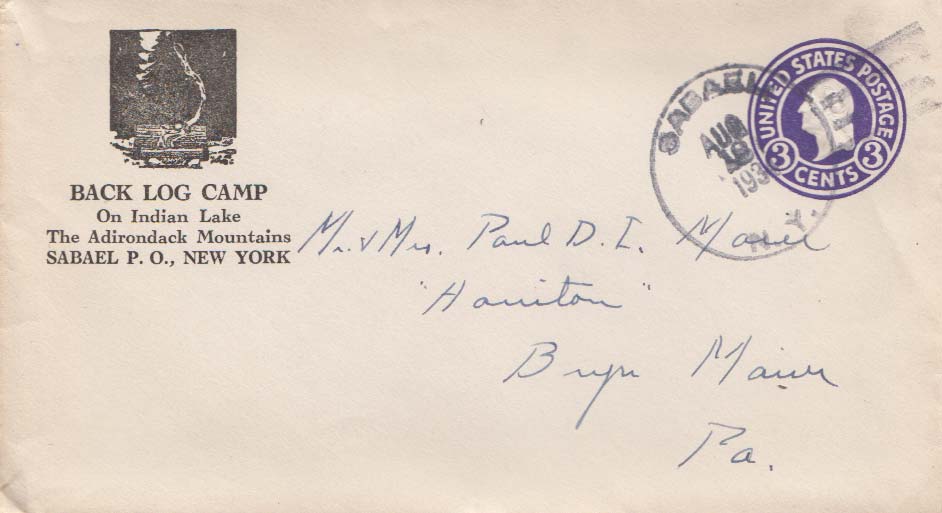 BACK LOG CAMP
On Indian Lake
The Adirondack Mountains
SABAEL P. O., NEW YORK
SABAEL
AUG
193
N. Y.
UNITED STATES POSTAGE
3 CENTS 3
Mr. & Mrs. Paul D. I. Maier
"Haniton"
Bryn Mawr
Pa.